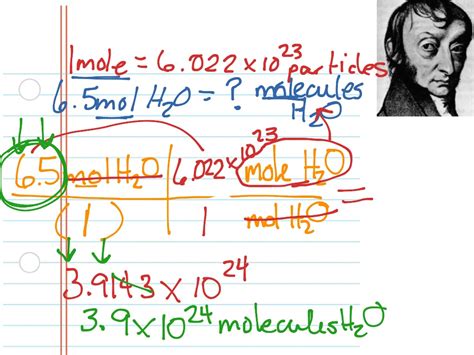 1mole = 6.022 x 10²³ particles
6.5mol H₂O = ? molecules H₂O
6.5 mol H₂O | 6.022 x 10²³ mole H₂O =
1 | 1 mol H₂O
3.9143 x 10²⁴
3.9 x 10²⁴ molecules H₂O